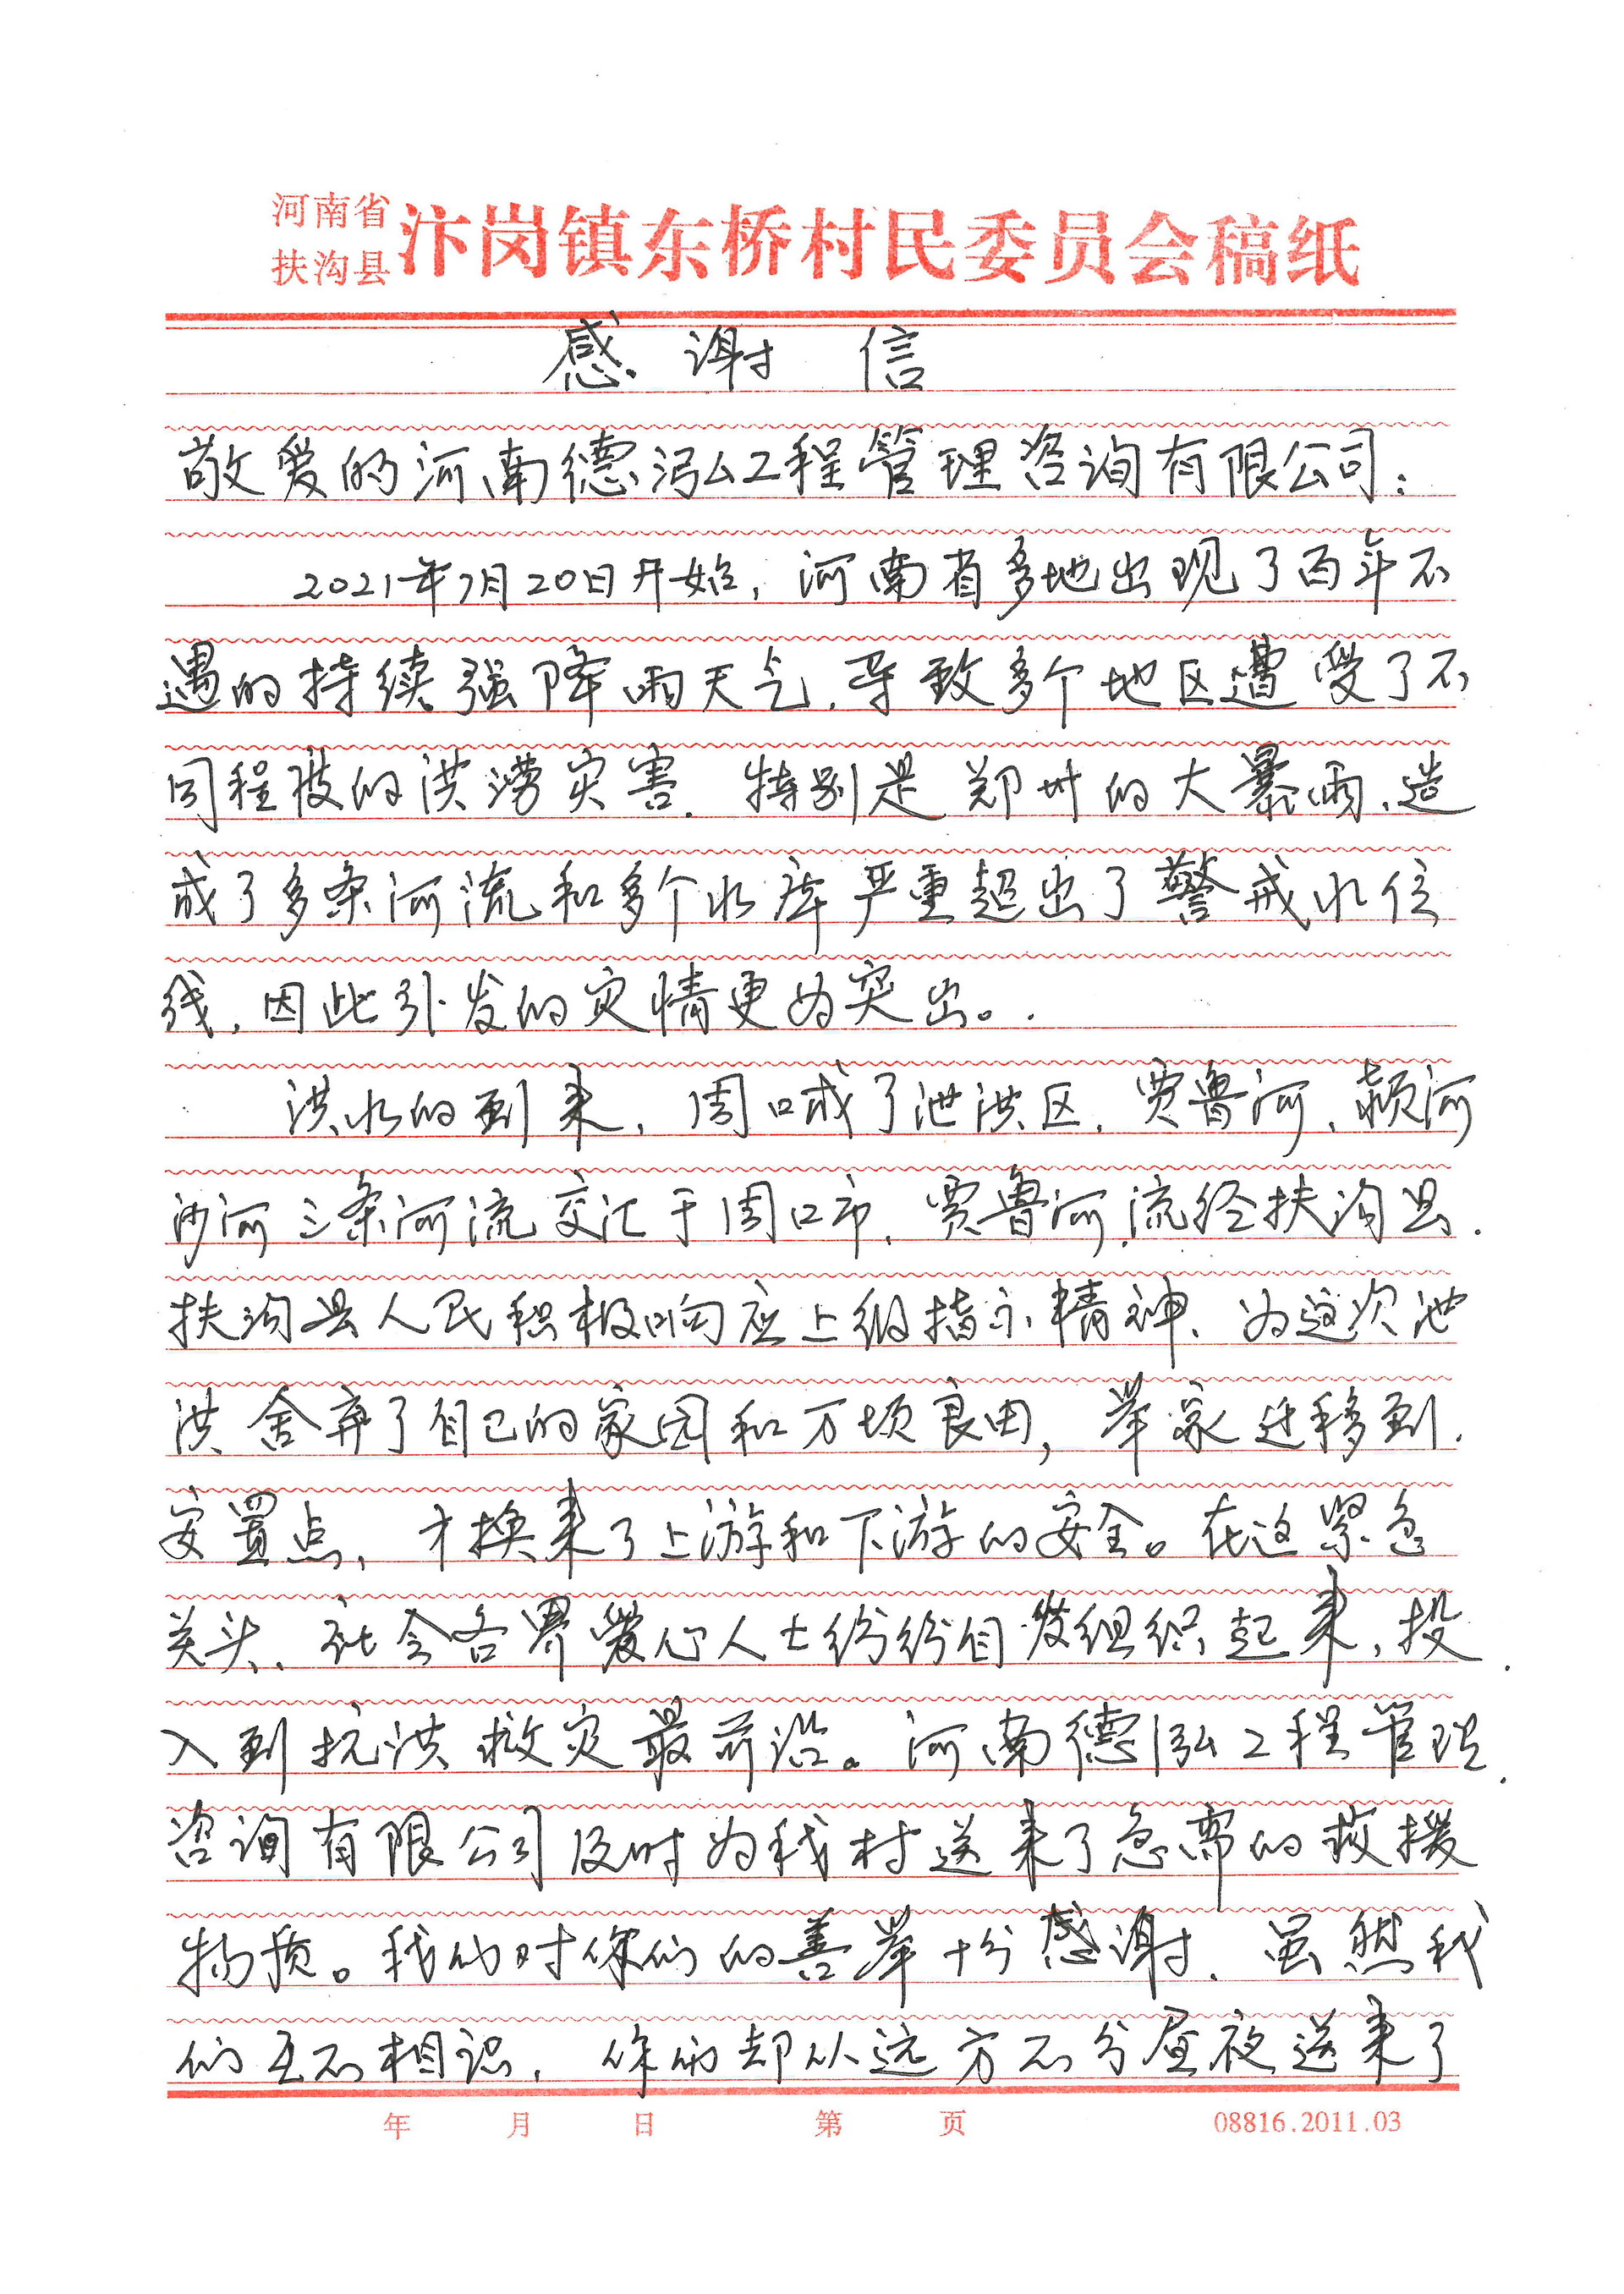 河南省
扶沟县
汴岗镇东桥村民委员会稿纸
感谢信
敬爱的河南德泓工程管理咨询有限公司：
2021年7月20日开始，河南省多地出现了百年不
遇的持续强降雨天气，导致多个地区遭受了不
同程度的洪涝灾害，特别是郑州的大暴雨，造
成了多条河流和多个水库严重超出了警戒水位
线，因此引发的灾情更为突出。
洪水的到来，周口成了泄洪区，贾鲁河、颍河
沙河三条河流交汇于周口市，贾鲁河流经扶沟县.
扶沟县人民积极响应上级指示精神，为这次泄
洪舍弃了自己的家园和万顷良田，举家迁移到
安置点，才换来了上游和下游的安全。在这紧急
关头，社会各界爱心人士纷纷自发组织起来，投
入到抗洪救灾最前沿。河南德泓工程管理
咨询有限公司及时为我村送来了急需的救援
物质。我们对你们的善举十分感谢，虽然我
们互不相识，你们却从远方不分昼夜送来了
年 月 日 第 页 08816.2011.03